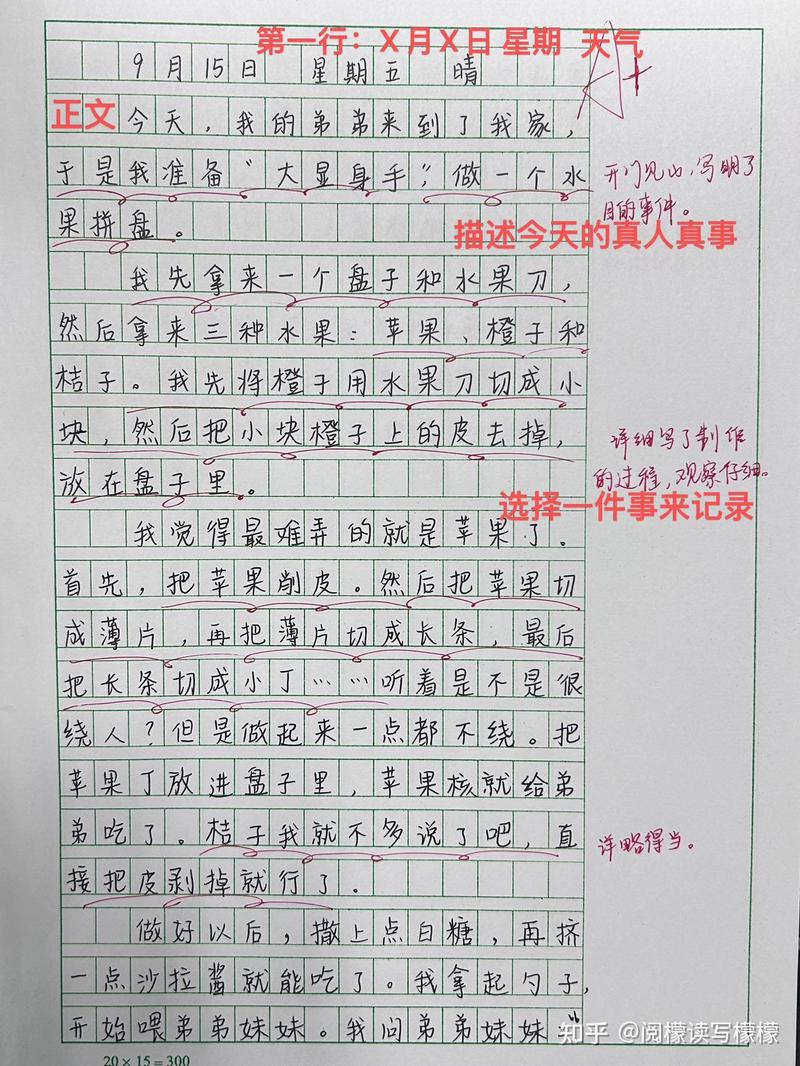 第一行：X月X日 星期 天气
9月15日 星期五 晴
A+
正文
今天，我的弟弟来到了我家，
于是我准备“大显身手”，做一个水
果拼盘。
开门见山，写明了
目的事件。
描述今天的真人真事
我先拿来一个盘子和水果刀，
然后拿来三种水果：苹果、橙子和
桔子。我先将橙子用水果刀切成小
块，然后把小块橙子上的皮去掉，
放在盘子里。
详细写了制作
的过程，观察仔细。
选择一件事来记录
我觉得最难弄的就是苹果了。
首先，把苹果削皮。然后把苹果切
成薄片，再把薄片切成长条，最后
把长条切成小丁……听着是不是很
绕人？但是做起来一点都不绕。把
苹果丁放进盘子里，苹果核就给弟
弟吃了。桔子我就不多说了吧，直
接把皮剥掉就行了。
详略得当。
做好以后，撒上点白糖，再挤
一点沙拉酱就能吃了。我拿起勺子，
开始喂弟弟妹妹。我问弟弟妹妹：“
知乎 @阅檬读写檬檬
20×15=300